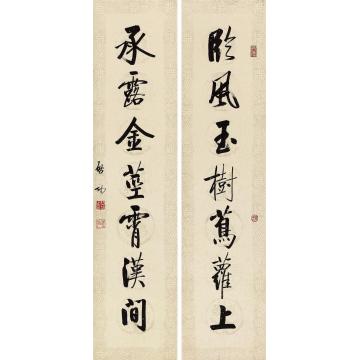 臨風玉樹蔦蘿上
承露金莖霄漢間
启功